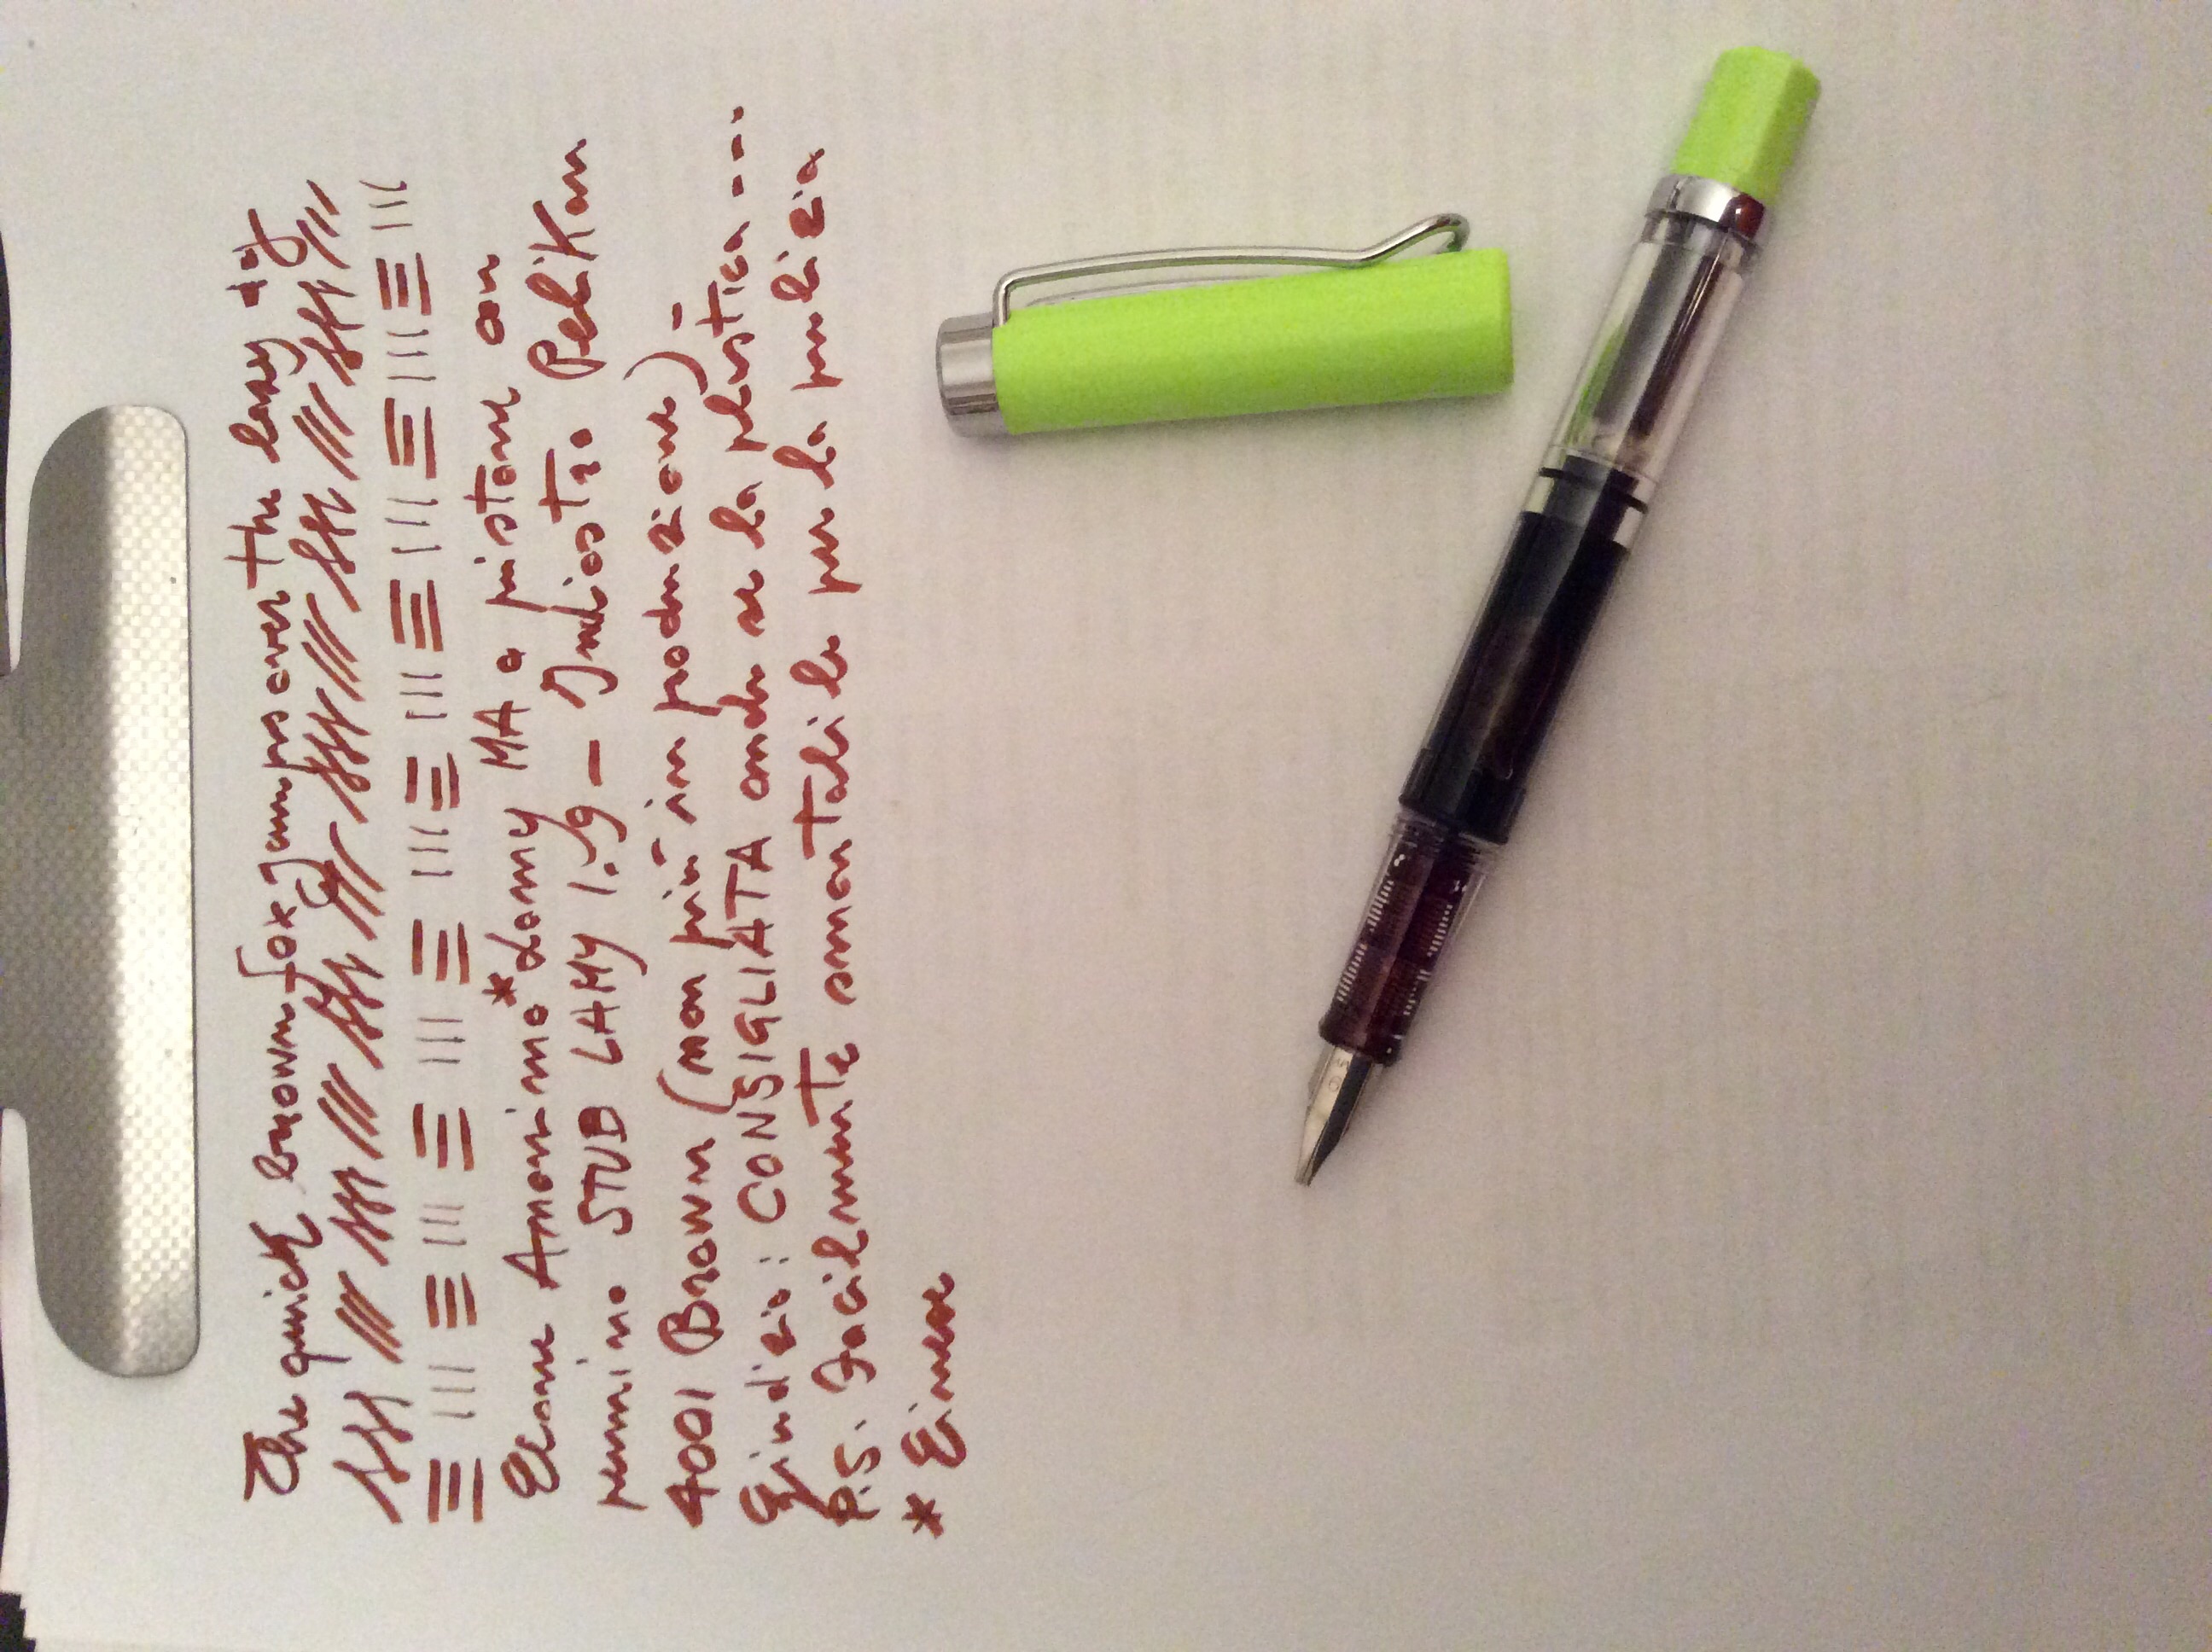 The quick brown fox jumps over the lazy dog
Clone Anonimo* Lamy MA a pistone con
pennino STUB LAMY 1.9 - Inchiostro Pelikan
4001 Brown (non più in produzione) -
Giudizio: CONSIGLIATA anche se la plastica ---
P.S. Facilmente smontabile per la pulizia
* Cinese